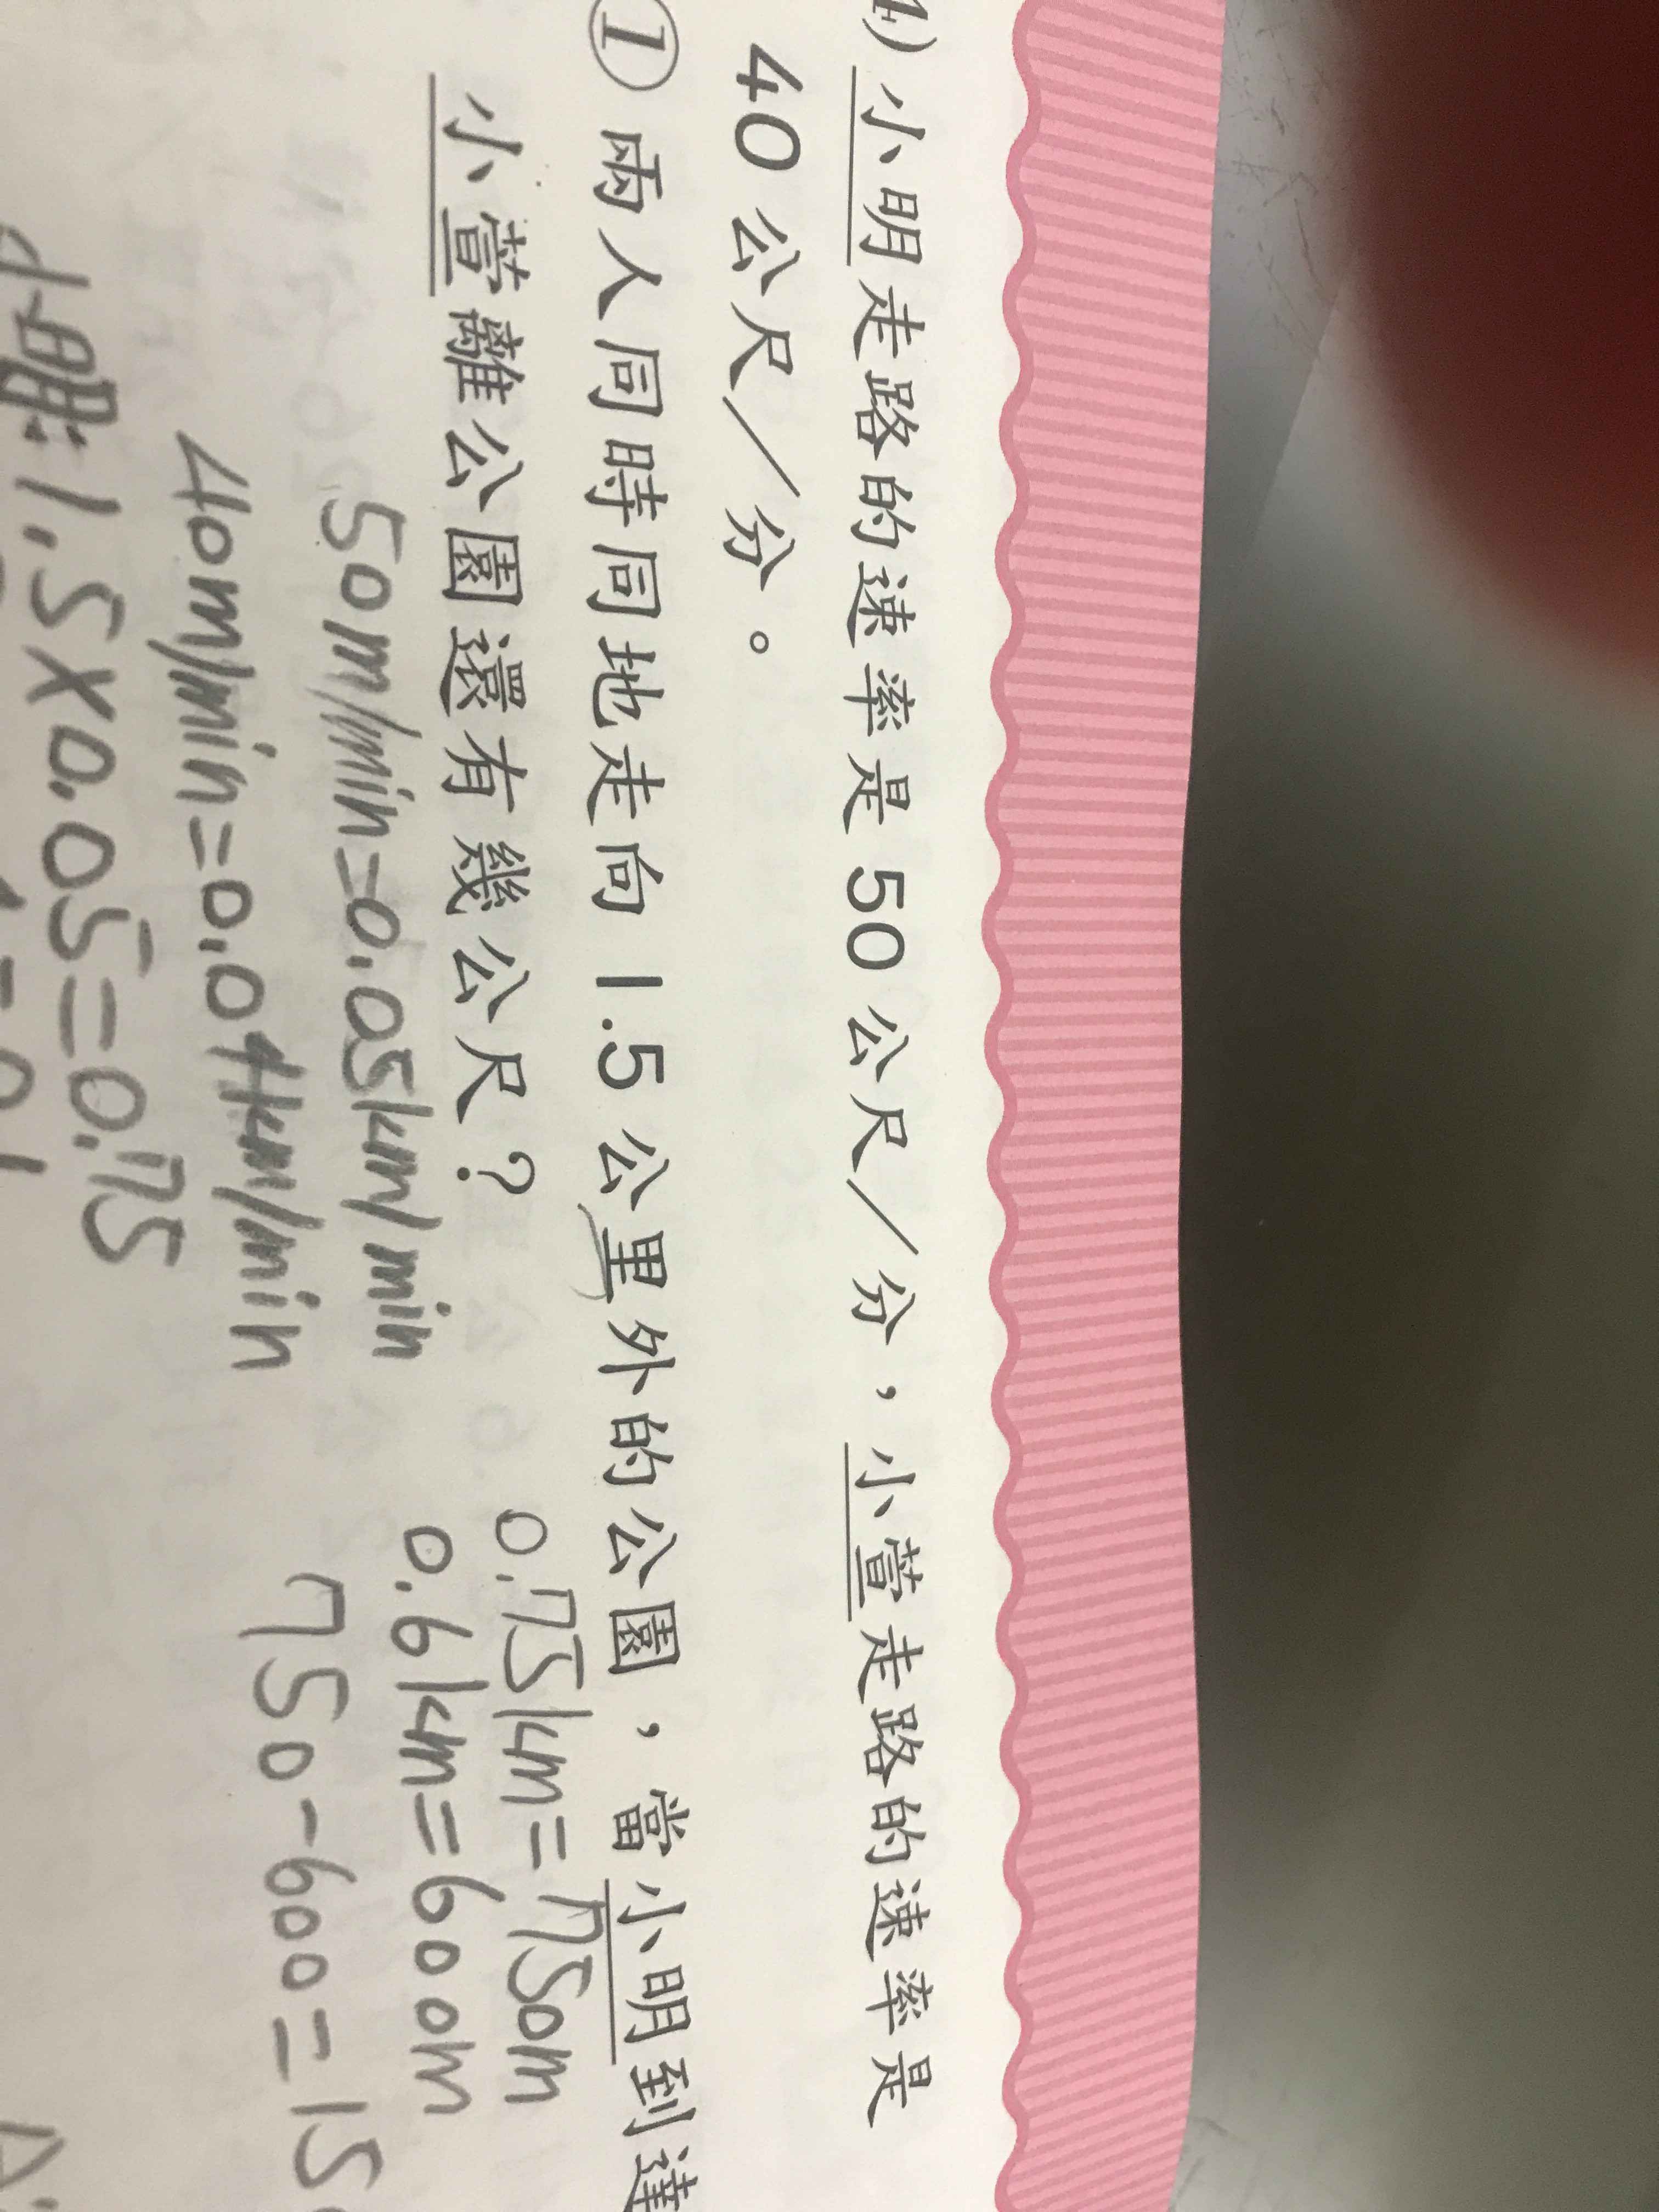 小明走路的速率是50公尺／分，小萱走路的速率是
40公尺／分。
① 兩人同時同地走向1.5公里外的公園，當小明到達
小萱離公園還有幾公尺？
50m/min=0.05km/min
40m/min=0.04km/min
小明:1.5×0.05=0.75
0.75km=750m
0.6km=600m
750-600=15